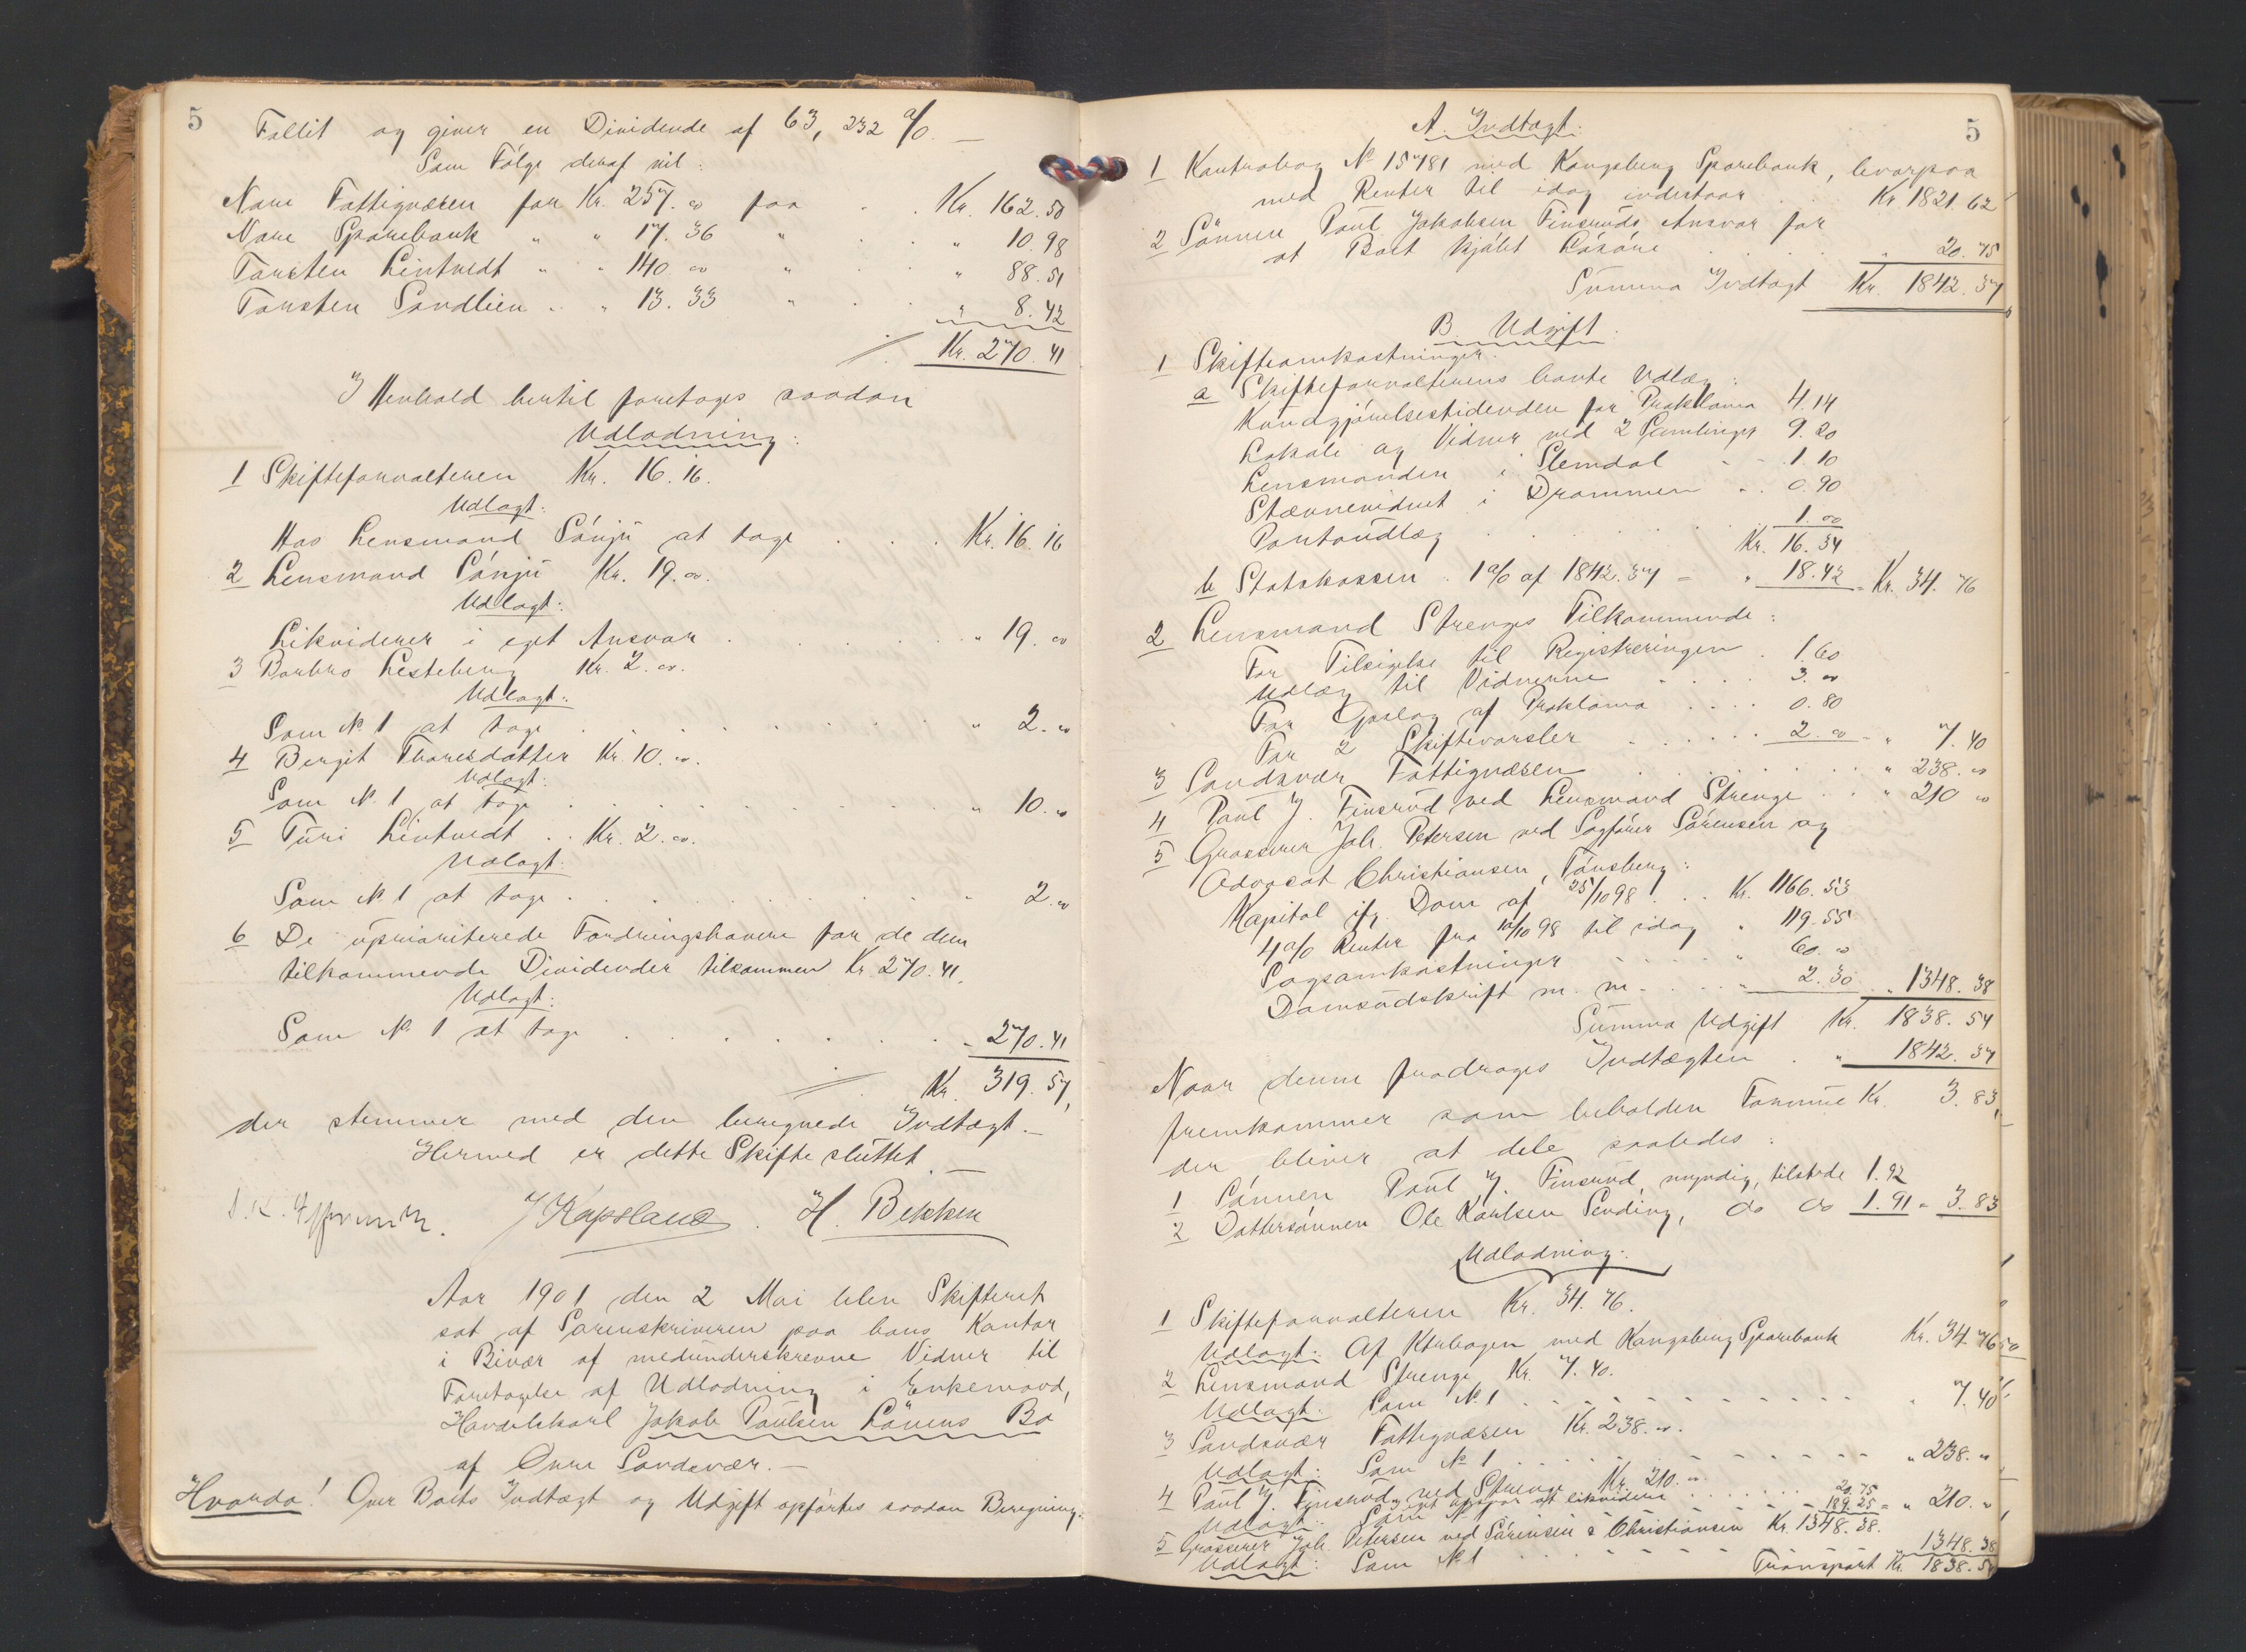 5
Fallit og giver en Dividende af 63,232 %. —
Som Følge deraf vil:
Nore Fattigvæsen for Kr. 257.00 faa . . Kr. 162.50
Nore Sparebank " " 17.36 " . . " 10.98
Torsten Lintvedt " " 140.00 " . . " 88.51
Torsten Sandlien " " 13.33 " . . " 8.42
Kr. 270.41
I Henhold hertil foretages saadan
Udlodning:
1 Skifteforvalteren Kr. 16.16.
Udlagt:
Hos Lensmand Sønju at tage . . . Kr. 16.16
2 Lensmand Sønju Kr. 19.00.
Udlagt:
Likviderer i eget Ansvar . . . . " 19.00
3 Barbro Kr. 2.00.
Udlagt:
Som № 1 at tage . . . . " 2.00
4 Bergit Thoresdatter Kr. 10.00.
Udlagt:
Som № 1 at tage . . . . " 10.00
5 Turi Lintvedt . . Kr. 2.00.
Udlagt:
Som № 1 at tage . . . . " 2.00
6 De uprioriterede Fordringshavere for de dem
tilkommende Dividender tilsammen Kr. 270.41.
Udlagt:
Som № 1 at tage . . . . " 270.41
Kr. 319.57,
der stemmer med den beregnede Indtægt. —
Hermed er dette Skifte sluttet. —
H. Bekken
Aar 1901 den 2 Mai blev Skifteret
sat af Sorenskriveren paa hans Kontor
i Bivær af medunderskrevne Vidner til
Foretagelse af Udlodning i Enkemand,
Handelskarl Jakob Paulsen Løvens Bo
af Øvre Sandsvær. —
Hvorda! Over Boets Indtægt og Udgift opførtes saadan Beregning:
5
A. Indtægt:
1 Kontrabog № 15781 med Kongsberg Sparebank, hvorpaa
med Renter til idag indestaar . . Kr. 1821.62
2 Sønnen Paul Jakobsen Finsruds Ansvar for
at Boet kjøbt Løsøre . . . . " 20.75
Summa Indtægt Kr. 1842.37
B. Udgift.
1 Skifteomkostninger.
a Skifteforvalterens havte Udlæg:
Kundgjørelsestidenden for Proklama 4.14
Lokale og Vidner ved 2 Samlinger 9.20
Lensmanden i Slemdal - - 1.10
Stævnevidnet i Drammen . . 0.90
Portoudlæg . . . . 1.00
Kr. 16.34
b Statskassen . 1 % af 1842.37 = " 18.42 = Kr. 34.76
2 Lensmand Strenges Tilkommende:
For Tilsigelse til Registreringen . 1.60
Udlæg til Vidnerne . . . . 3.00
For Opslag af Proklama . . . . 0.80
For 2 Skiftevarsler . . . . 2.00 = " 7.40
3 Sandsvær Fattigvæsen . . . . " 238.00
4 Paul J. Finsrud ved Lensmand Strenge . . " 210.00
5 Grosserer Joh. Petersen ved Sagfører Sørensen og
Advocat Christiansen, Tønsberg:
Kapital ifg. Dom af 25/10 98 . . . Kr. 1166.53
4 % Renter fra 10/10 98 til idag " 119.55
Sagsomkostninger . . . . " 60.00
Domsudskrift m. m. . . . " 2.30 . " 1348.38
Summa Udgift Kr. 1838.54
Naar denne fradrages Indtægten . " 1842.37
fremkommer som beholden Formue Kr. 3.83,
der bliver at dele saaledes:
1 Sønnen Paul J. Finsrud, myndig, tilstede 1.92
2 Dattersønnen Ole Karlsen Sending, do do 1.91 = 3.83
Udlodning:
1 Skifteforvalteren Kr. 34.76.
Udlagt: Af Ktrbogen med Kongsberg Sparebank Kr. 34.76
2 Lensmand Strenge Kr. 7.40.
Udlagt: Som № 1 . . . . " 7.40
3 Sandsvær Fattigvæsen Kr. 238.00.
Udlagt: Som № 1 . . . . " 238.00
4 Paul J. Finsrud, ved Strenge Kr. 210.00.
Udlagt: I eget Ansvar at likvidere . . . . 20.75
Som № 1 . . . . 189.25 = " 210.00
5 Grosserer Joh. Petersen ved Sørensen & Christiansen Kr. 1348.38.
Udlagt: Som № 1 . . . . 1348.38
Transport Kr. 1838.54